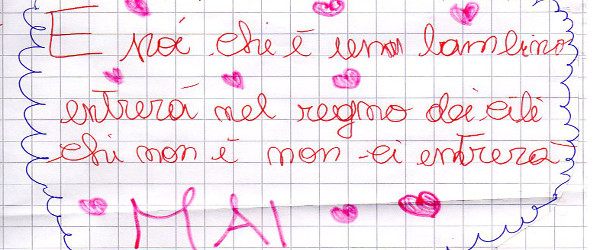 E ná chi è una bambino
entrerá nel regno dei cili
chi non è non ci entrerà
MAI